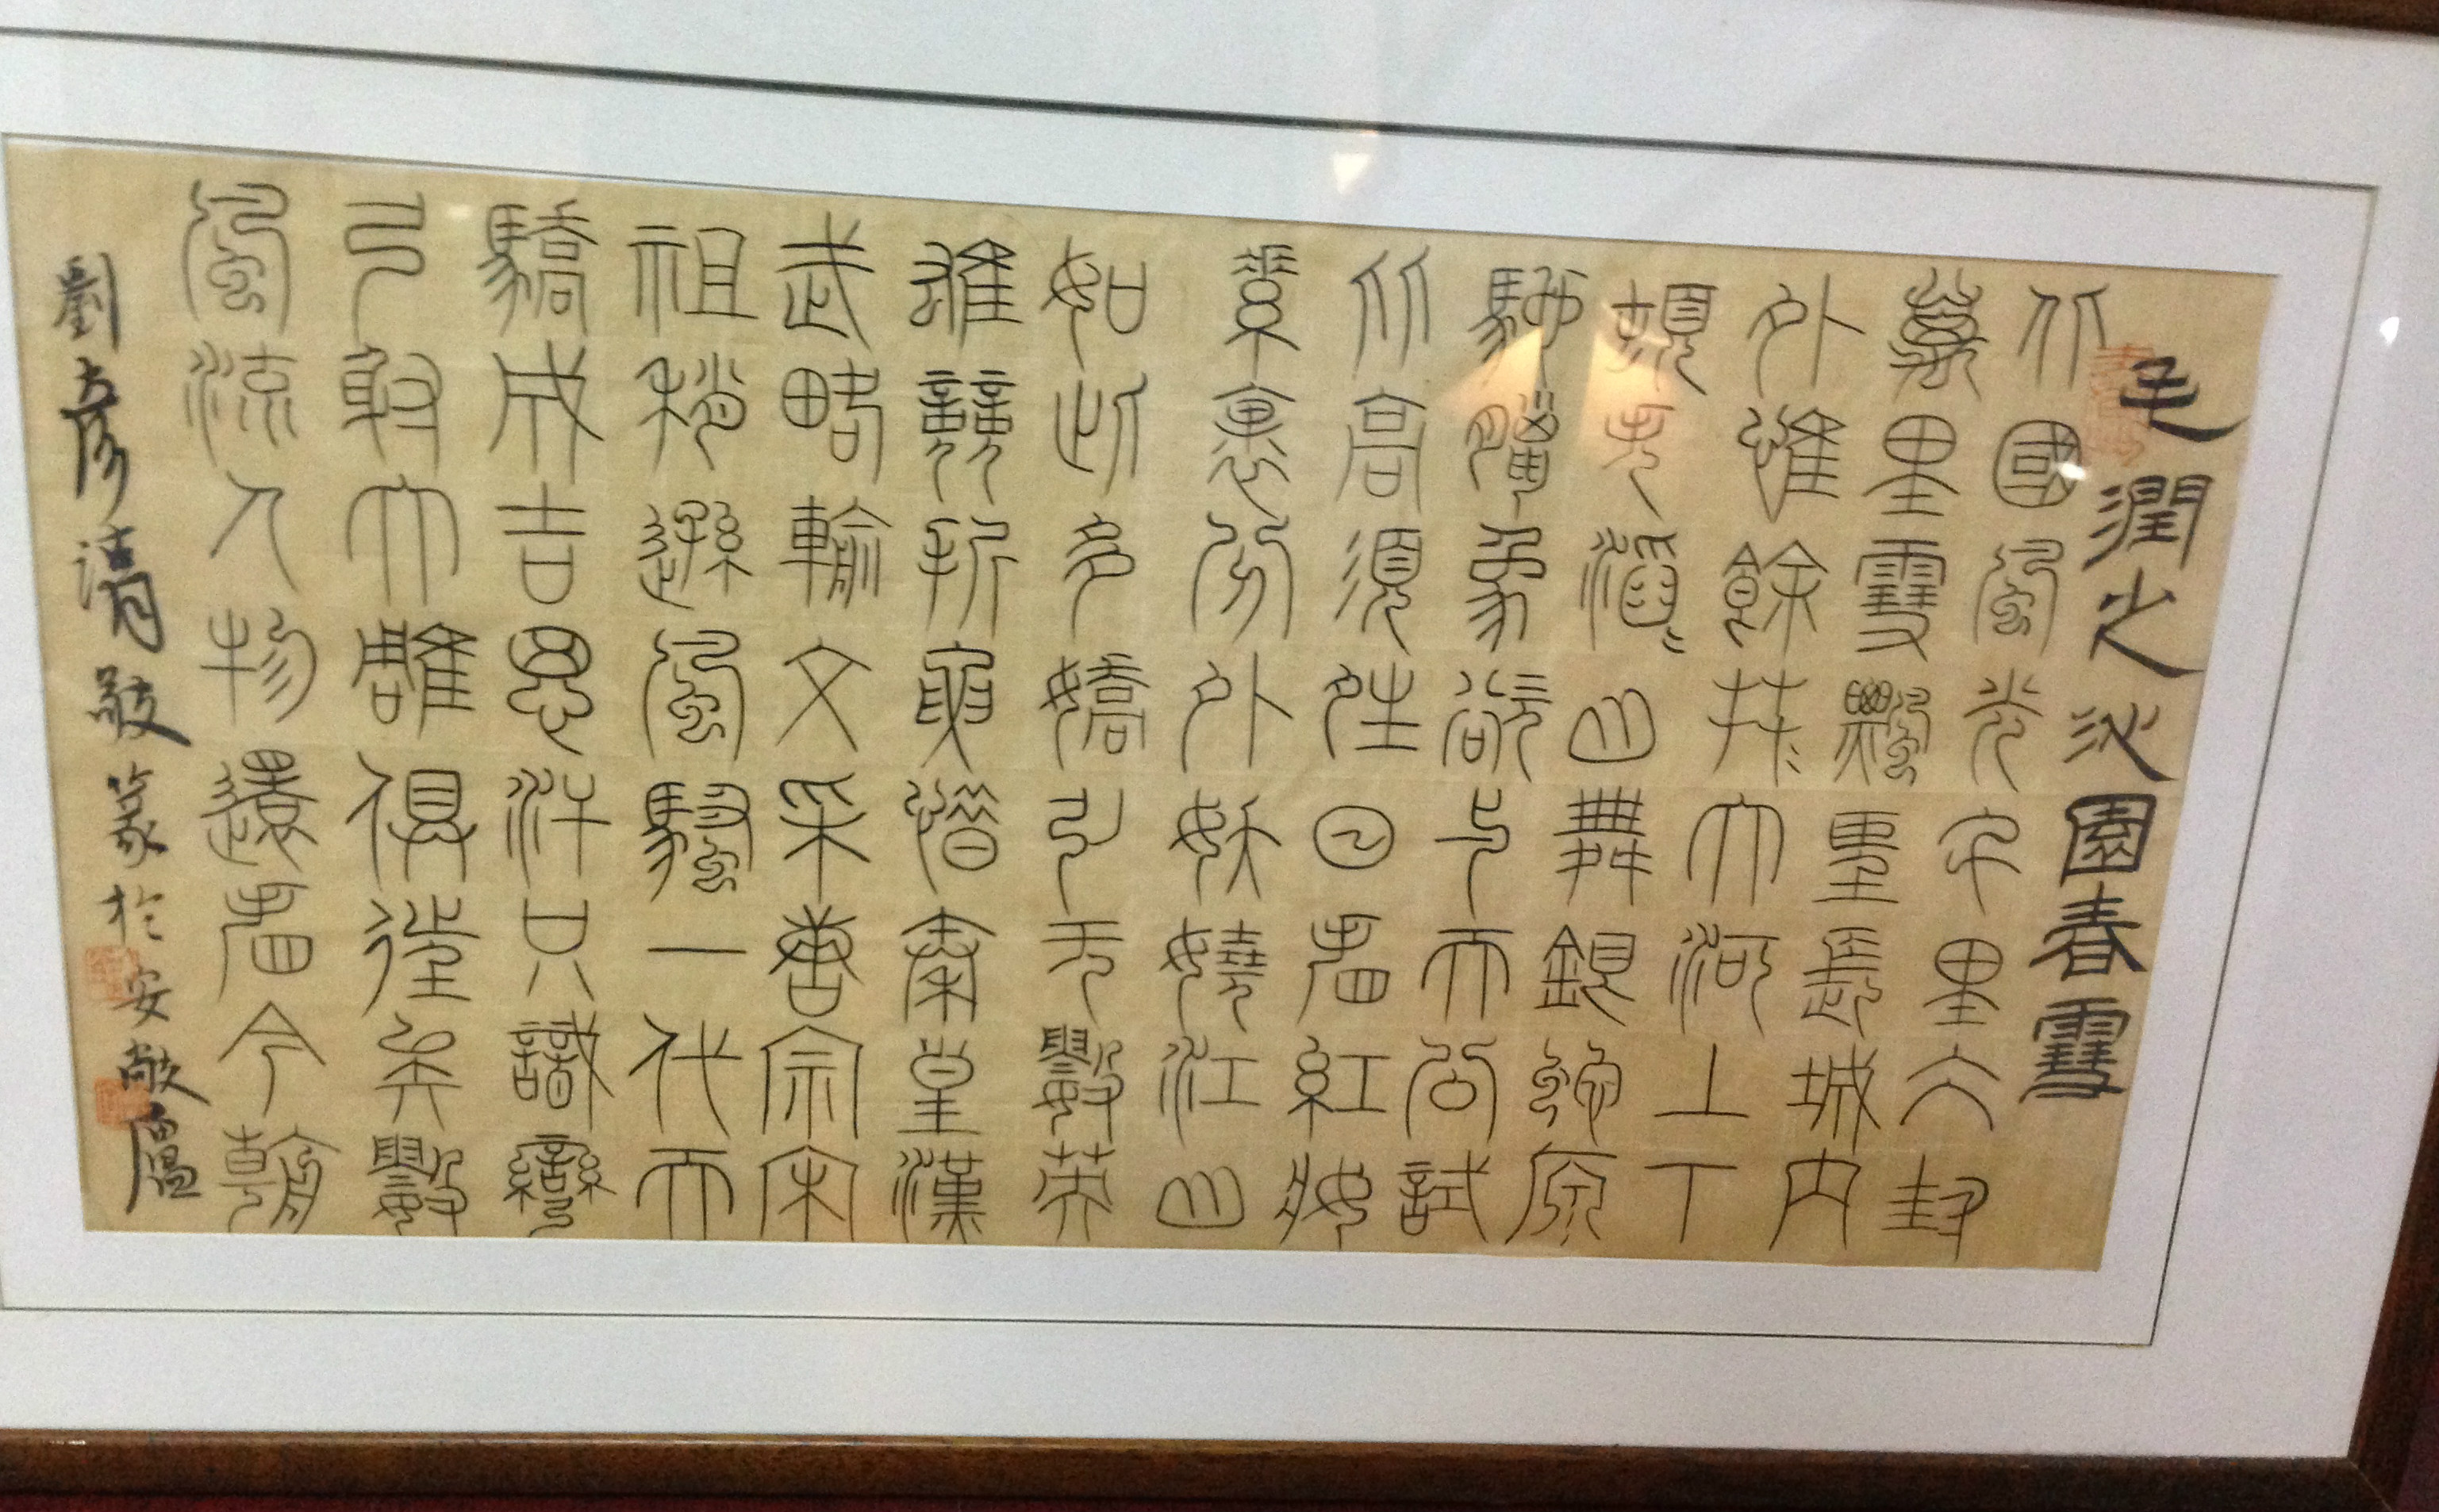 毛潤之沁園春雪
北國風光千里冰封
萬里雪飄望長城內
外惟餘莽〻大河上下
頓失滔〻山舞銀蛇原
馳臘象欲與天公試
比高須晴日看紅妝
素裹分外妖嬈江山
如此多嬌引无數英
雄競折腰惜秦皇漢
武略輸文采唐宗宋
祖稍遜風騷一代天
驕成吉思汗只識彎
弓射大雕俱往矣數
風流人物還看今朝
劉彥清敬篆於安敞廬